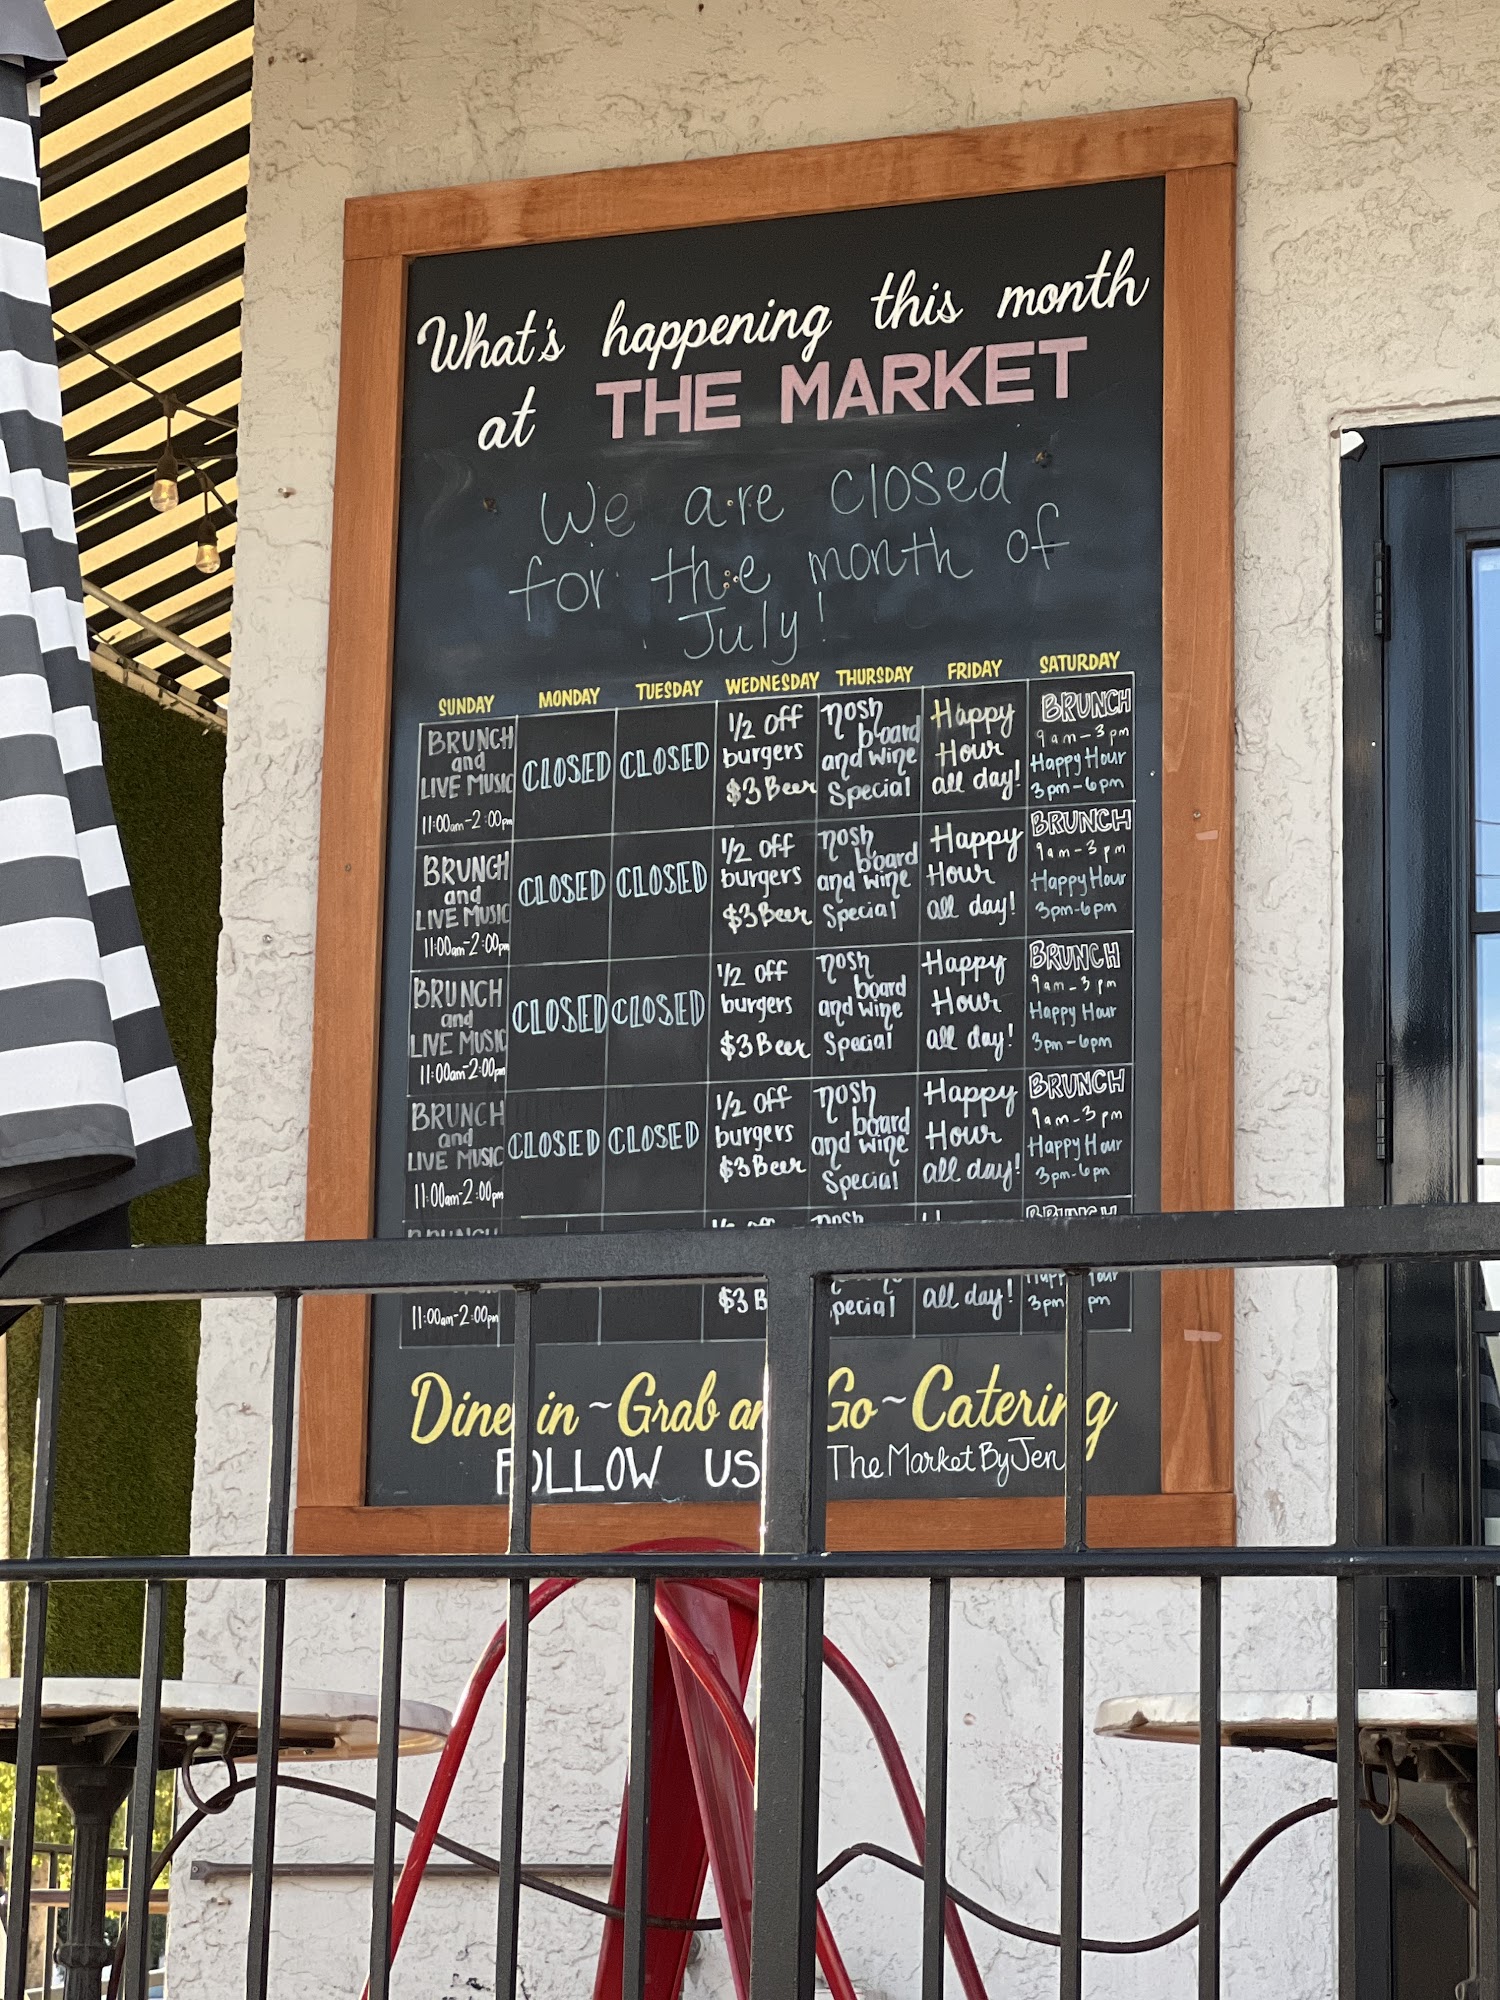 What's happening this month
at THE MARKET
We are closed
for the month of
July!
SUNDAY MONDAY TUESDAY WEDNESDAY THURSDAY FRIDAY SATURDAY
BRUNCH
and
LIVE MUSIC
11:00am-2:00pm
CLOSED
CLOSED
1/2 off
burgers
$3 Beer
nosh
board
and wine
Special
Happy
Hour
all day!
BRUNCH
9am-3pm
Happy Hour
3pm-6pm
BRUNCH
and
LIVE MUSIC
11:00am-2:00pm
CLOSED
CLOSED
1/2 off
burgers
$3 Beer
nosh
board
and wine
Special
Happy
Hour
all day!
BRUNCH
9am-3pm
Happy Hour
3pm-6pm
BRUNCH
and
LIVE MUSIC
11:00am-2:00pm
CLOSED
CLOSED
1/2 off
burgers
$3 Beer
nosh
board
and wine
Special
Happy
Hour
all day!
BRUNCH
9am-3pm
Happy Hour
3pm-6pm
BRUNCH
and
LIVE MUSIC
11:00am-2:00pm
CLOSED
CLOSED
1/2 off
burgers
$3 Beer
nosh
board
and wine
Special
Happy
Hour
all day!
BRUNCH
9am-3pm
Happy Hour
3pm-6pm
BRUNCH
11:00am-2:00pm
1/2 off
$3 B
nosh
pecial
all day!
BRUNCH
Happy Hour
3pm pm
Dine in ~ Grab an Go ~ Catering
FOLLOW US TheMarketByJen